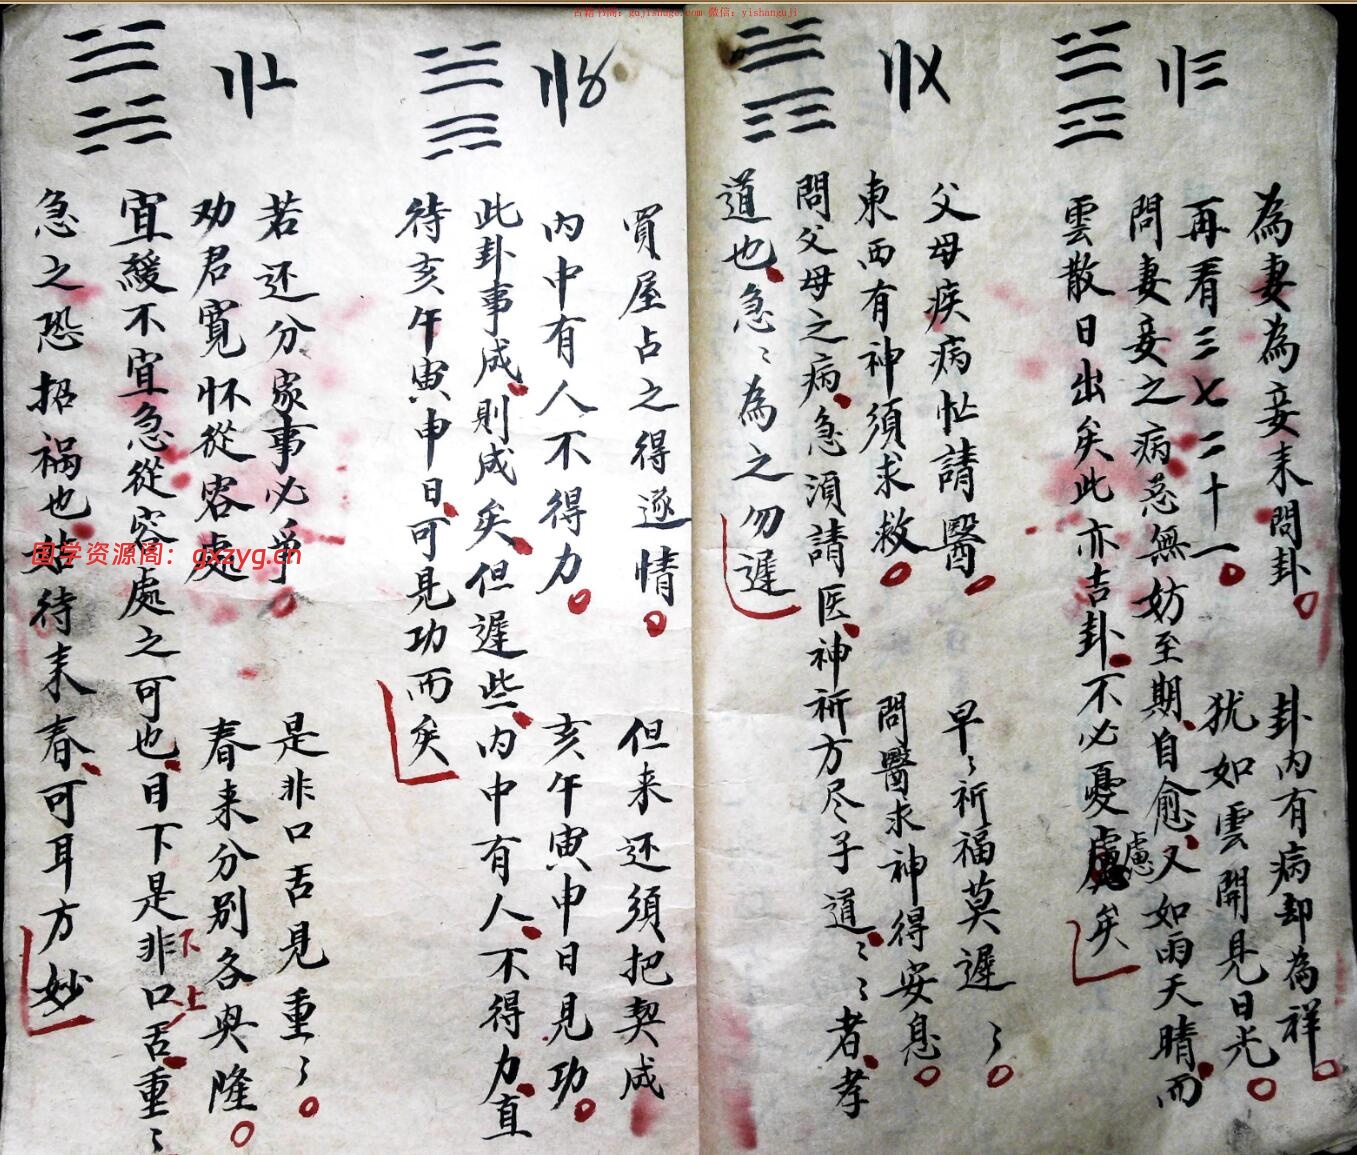 古籍书阁：gujishuge.com 微信：yishanguji
〣三
為妻為妾来問卦
卦内有病却為祥
再看三七二十一
犹如雲開見日光
問妻妾之病忽無妨至期自愈又如雨天晴而
雲散日出矣此亦吉卦不必憂慮矣
慮
〢〤
父母疾病忙請醫
早〻祈福莫遲〻
東西有神須求救
問醫求神得安息
問父母之病急須請医神祈方尽子道〻〻者孝
道也急〻為之勿遲
買屋占之得遂情
但来还須把契成
内中有人不得力
亥午寅申日見功
此卦事成則成矣但遲些内中有人不得力直
待亥午寅申日可見功而矣
〢〦
若还分家事必爭
是非口舌見重〻
劝君寬怀從容處
春来分别各興隆
宜緩不宜急從容處之可也目下是非口舌重〻
下
上
急之恐招禍也姑待来春可耳方妙
国学资源阁：gxzyg.cn